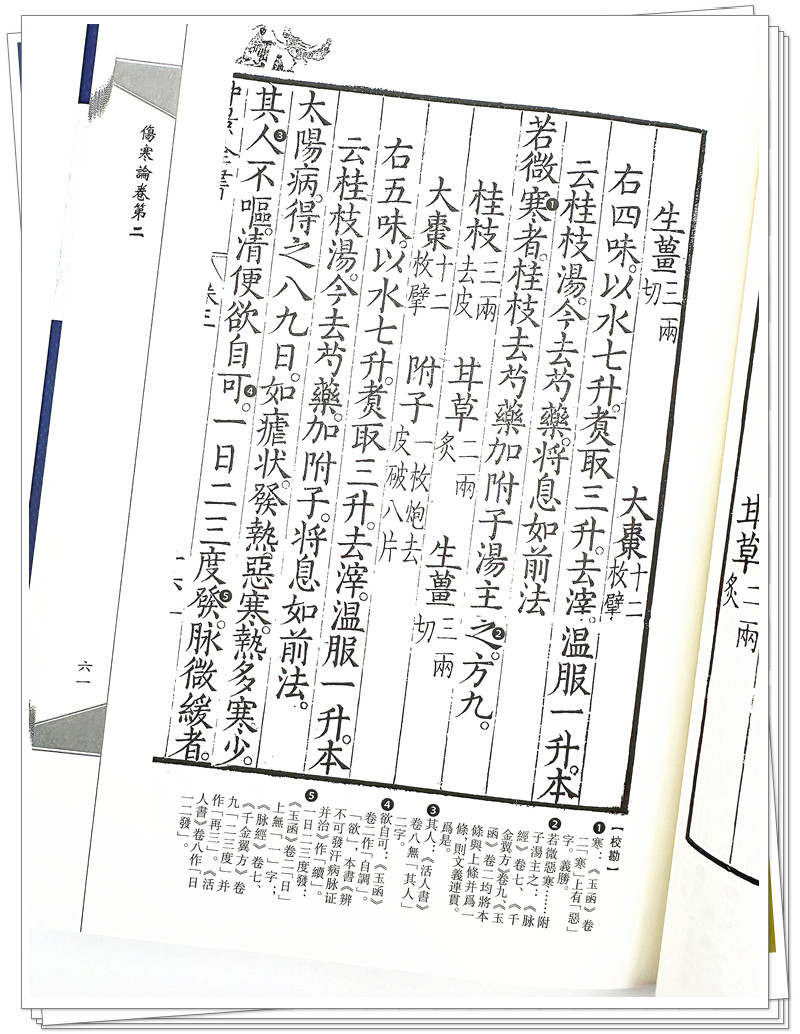 生薑三兩切 大棗十二枚擘
右四味。以水七升。煮取三升。去滓。温服一升。本
云桂枝湯。今去芍藥。將息如前法
若微寒❶者。桂枝去芍藥加附子湯主之❷。方九。
桂枝三兩去皮 甘草二兩炙 生薑三兩切
大棗十二枚擘 附子一枚炮去皮破八片
右五味。以水七升。煮取三升。去滓。温服一升。本
云桂枝湯。今去芍藥。加附子。将息如前法。
太陽病。得之八九日。如瘧状。發熱。惡寒。熱多寒少。
其人❸不嘔。清便欲自可❹。一日二三度發❺。脉微緩者。
【校勘】
❶寒：《玉函》卷
二「寒」上有「惡」
字。義勝。
❷若微惡寒……附
子湯主之：《脉
經》卷七、《千
金翼方》卷九、《玉
函》卷二均將本
條與上條并爲一
條，則文義連貫。
爲是。
❸其人：《活人書》
卷八無「其人」
二字。
❹欲自可：《玉函》
卷二作「自調」。
「欲」，本書《辨
不可發汗病脉证
并治》作「續」。
❺一日二三度發：
《玉函》卷二「日」
上無「一」字；
《脉經》卷七、
《千金翼方》卷
九「二三度」并
作「再三」。《活
人書》卷八作「日
一二發」。
傷寒論卷第二
六一
甘草二兩炙